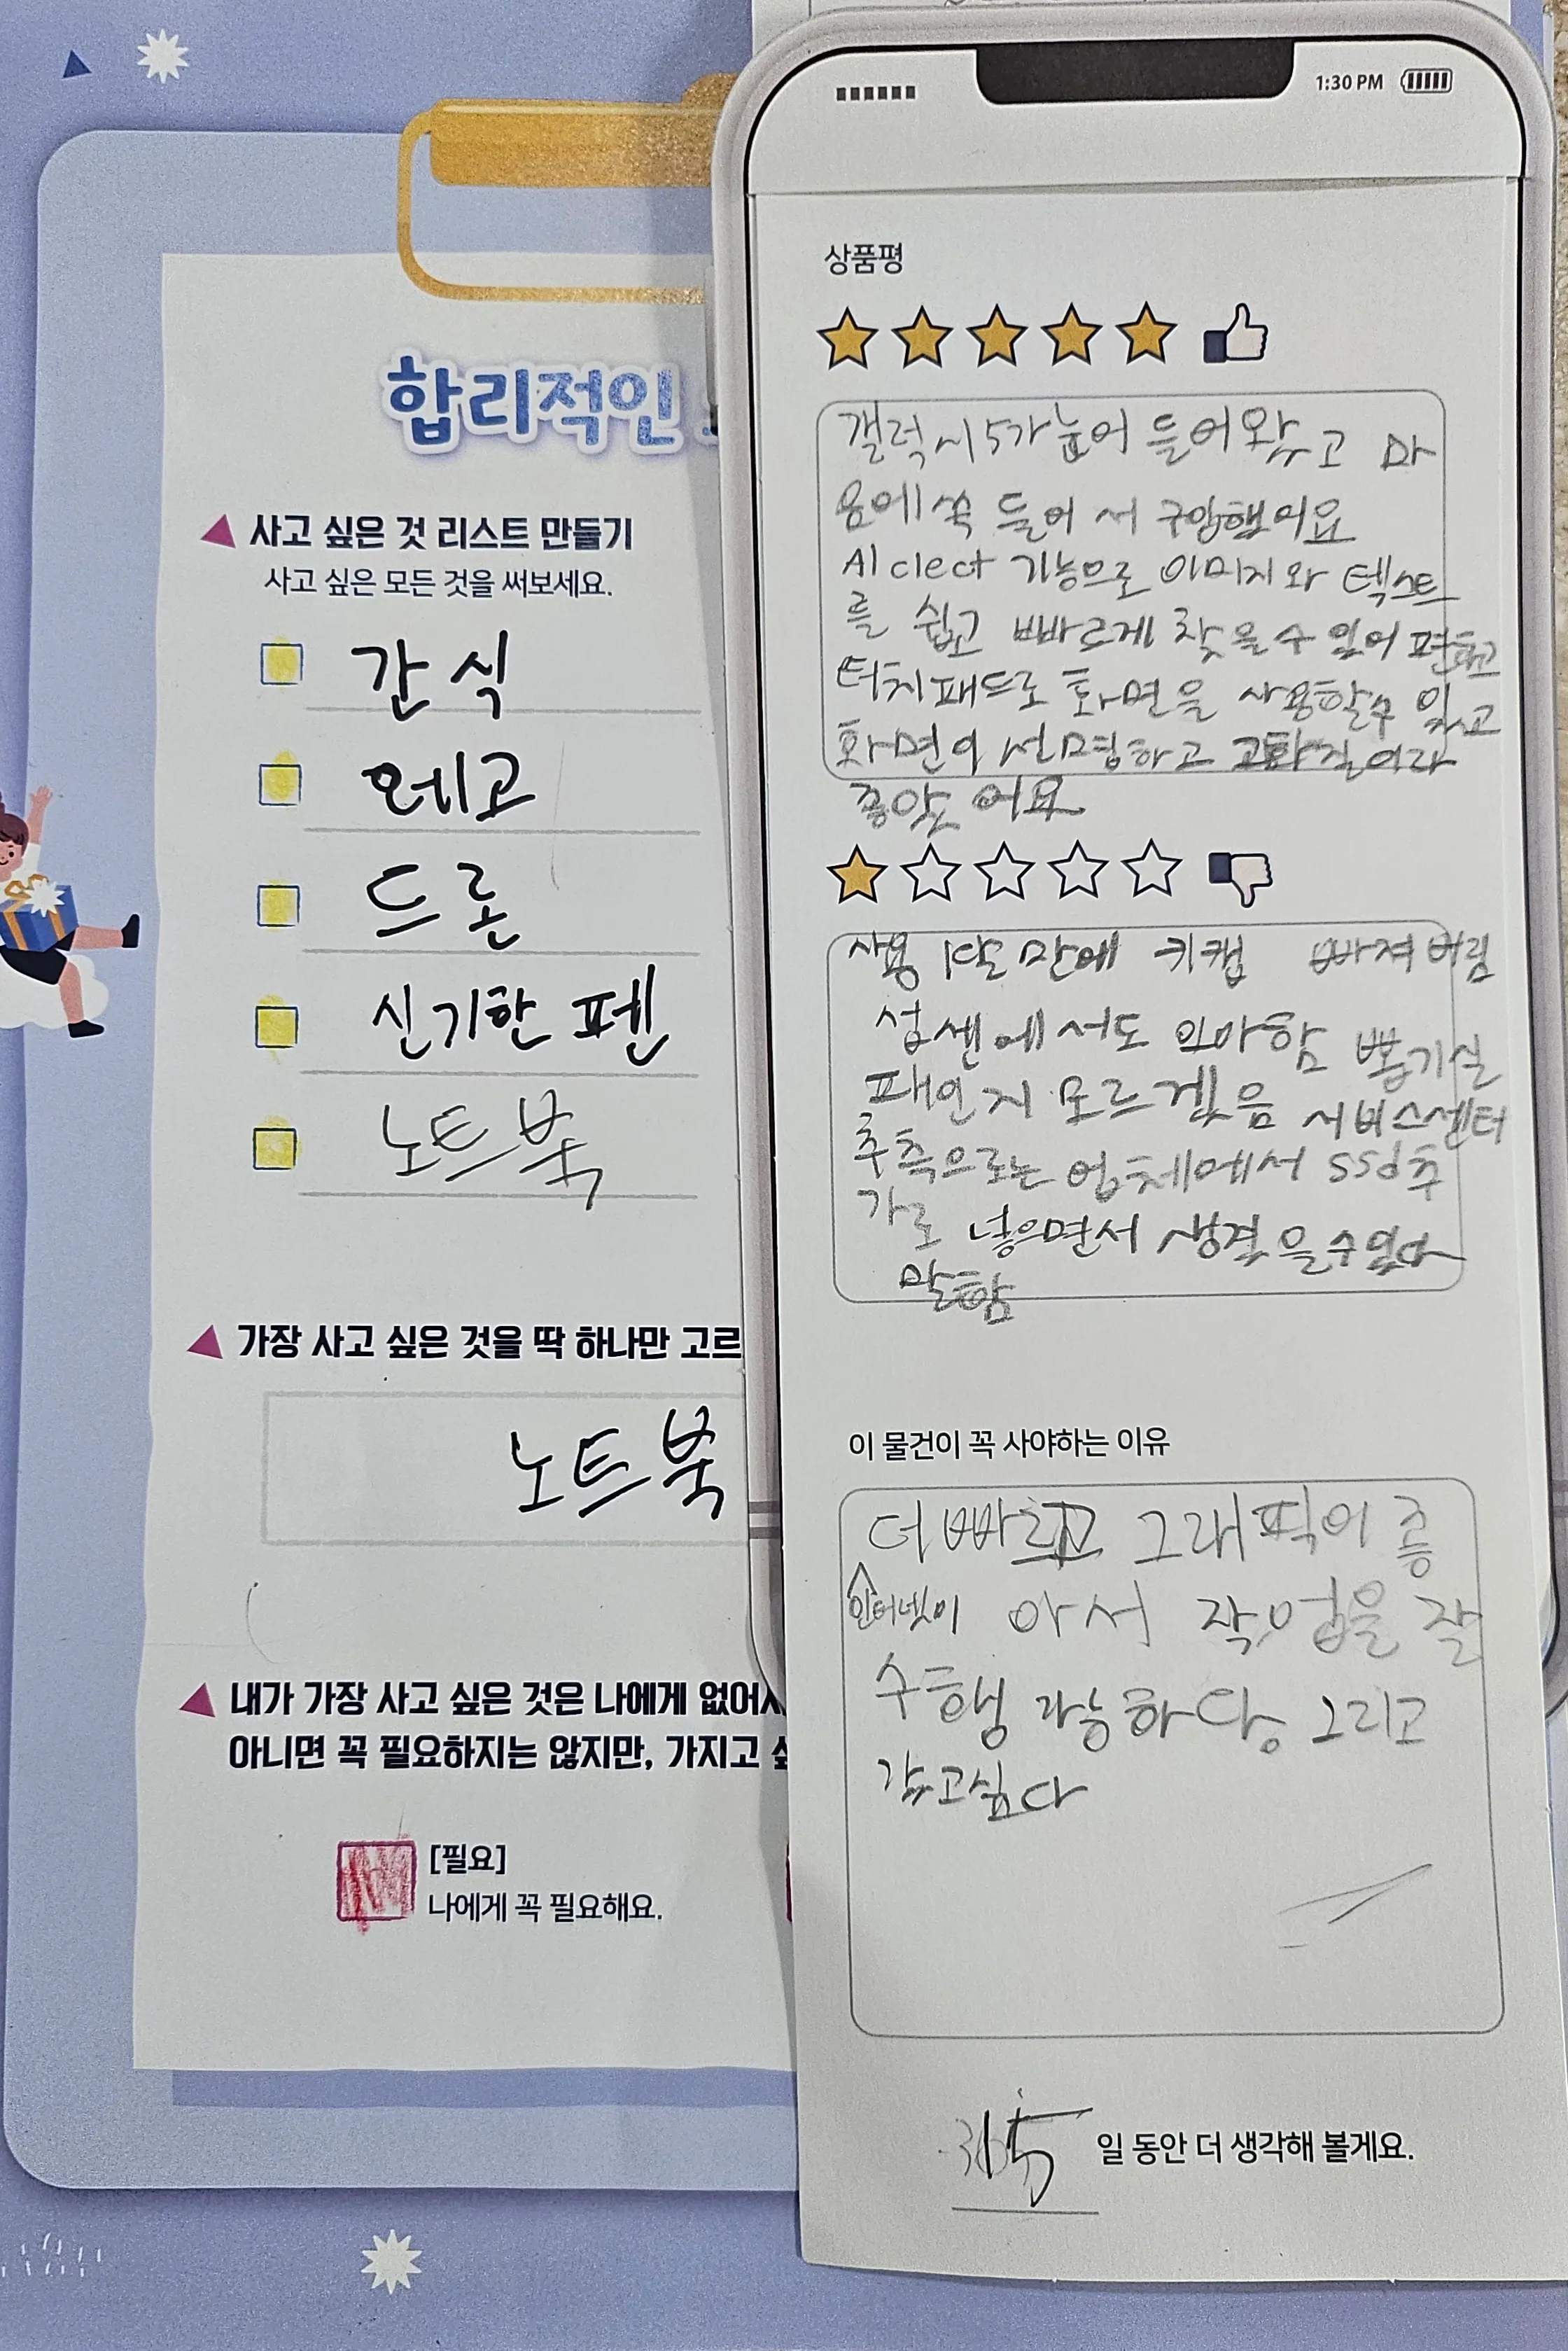 합리적인
사고 싶은 것 리스트 만들기
사고 싶은 모든 것을 써보세요.
간식
레고
드론
신기한 펜
노트북
가장 사고 싶은 것을 딱 하나만 고르
노트북
내가 가장 사고 싶은 것은 나에게 없어서
아니면 꼭 필요하지는 않지만, 가지고 싶
[필요]
나에게 꼭 필요해요.
1:30 PM
상품평
갤럭시5가 눈에 들어왔고 마
음에 쏙 들어서 구입했어요
AI clect 기능으로 이미지와 텍스트
를 쉽고 빠르게 찾을수 있어 편하고
터치패드로 화면을 사용할수 있고
화면이 선명하고 고화질이라
좋았어요
사용 1달 만에 키캡 빠져버림
섭센에서도 의아함 뽑기실
패인지 모르겠음 서비스센터
추측으로는 업체에서 ssd추
가로 넣으면서 생겼을수있다
말함
이 물건이 꼭 사야하는 이유
더 빠르고 그래픽이 좋
인터넷이 아서 작업을 잘
수행 가능하다, 그리고
갖고싶다
일 동안 더 생각해 볼게요.